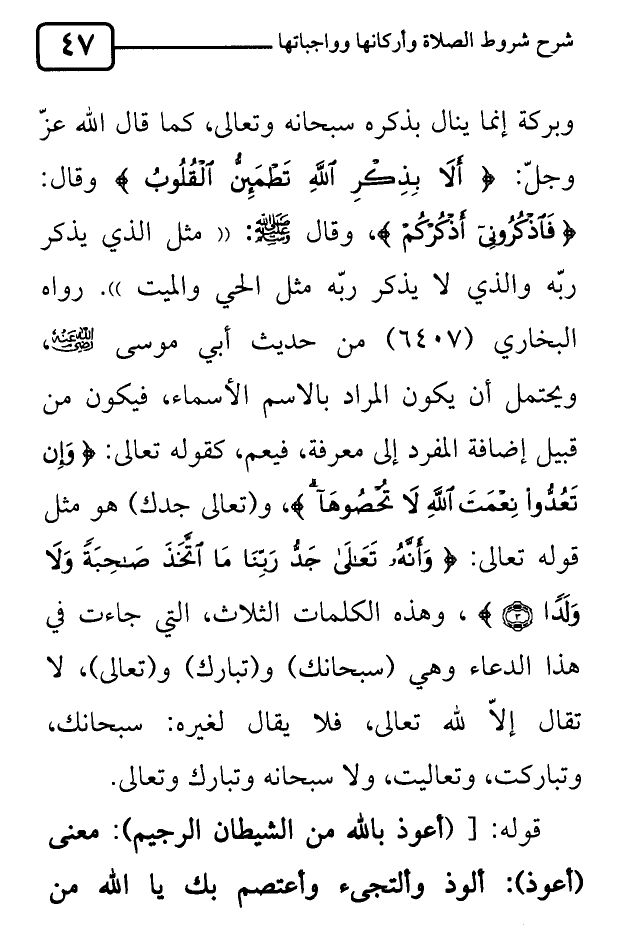 شرح شروط الصلاة وأركانها وواجباتها
٤٧
وبركة إنما ينال بذكره سبحانه وتعالى، كما قال الله عزّ
وجلّ: ﴿ أَلَا بِذِكْرِ ٱللَّهِ تَطْمَئِنُّ ٱلْقُلُوبُ ﴾ وقال:
﴿ فَٱذْكُرُونِىٓ أَذْكُرْكُمْ ﴾، وقال ﷺ: « مثل الذي يذكر
ربّه والذي لا يذكر ربّه مثل الحي والميت ». رواه
البخاري (٦٤٠٧) من حديث أبي موسى رضي الله عنه،
ويحتمل أن يكون المراد بالاسم الأسماء، فيكون من
قبيل إضافة المفرد إلى معرفة، فيعم، كقوله تعالى: ﴿ وَإِن
تَعُدُّوا۟ نِعْمَتَ ٱللَّهِ لَا تُحْصُوهَآ ۗ ﴾، و(تعالى جدك) هو مثل
قوله تعالى: ﴿ وَأَنَّهُۥ تَعَٰلَىٰ جَدُّ رَبِّنَا مَا ٱتَّخَذَ صَٰحِبَةً وَلَا
وَلَدًا ٣ ﴾ ، وهذه الكلمات الثلاث، التي جاءت في
هذا الدعاء وهي (سبحانك) و(تبارك) و(تعالى)، لا
تقال إلاّ لله تعالى، فلا يقال لغيره: سبحانك،
وتباركت، وتعاليت، ولا سبحانه وتبارك وتعالى.
قوله: [ (أعوذ بالله من الشيطان الرجيم): معنى
(أعوذ): ألوذ وألتجىء وأعتصم بك يا الله من